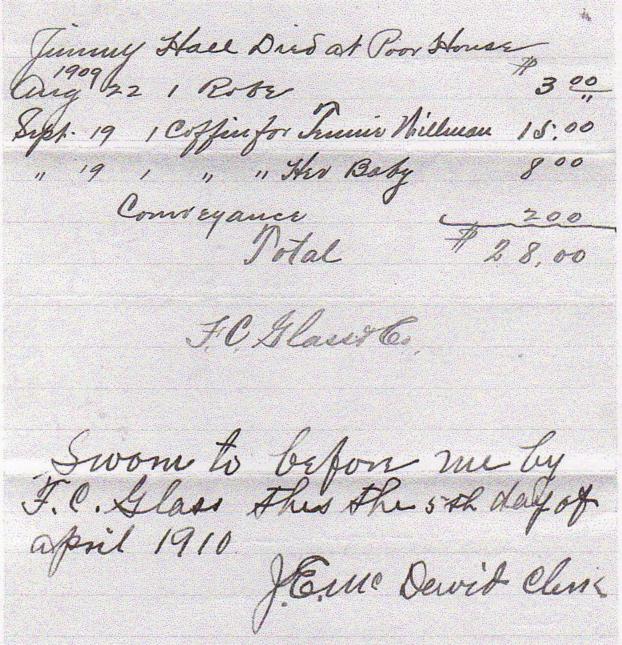 Jimmy Hall Died at Poor House
1909
Aug 22 1 Robe $ 3 00
Sept. 19 1 Coffin for Jennie Willman 15.00
" 19 1 " " Her Baby 8 00
Conveyance 2 00
Total $ 28,00
F. C. Glass & Co.
Sworn to before me by
F. C. Glass this the 5th day of
april 1910
J. E. Mc David Clerk